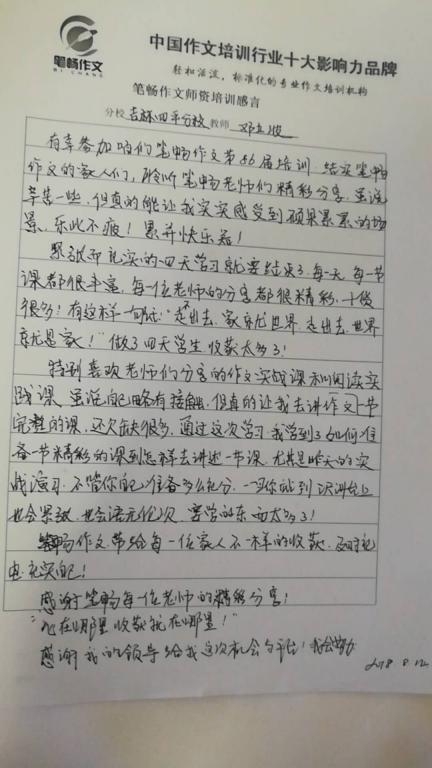 笔畅作文
BI CHANG
中国作文培训行业十大影响力品牌
轻松活泼，标准化的专业作文培训机构
笔畅作文师资培训感言
分校 吉林四平分校 教师 邓立波
有幸参加咱们笔畅作文第86届培训，结实笔畅
作文的家人们，聆听笔畅老师们精彩分享，虽说
辛苦一些，但真的能让我实实感受到硕果累累的场
景，乐此不疲！累并快乐着！
紧张而扎实的四天学习就要结束了，每一天，每一节
课都很丰富，每一位老师的分享都很精彩，收获
很多！有这样一句话："走不出去，家就是世界，走出去，世界
就是家！"做了四天学生收获太多了！
特别喜欢老师们分享的作文实战课和阅读实
践课，虽说自己略有接触，但真的让我去讲作文一节
完整的课，还欠缺很多，通过这次学习我学到了如何准
备一节精彩的课到怎样去讲述一节课，尤其是昨天的实
战演习，不管你自己准备多么充分，一旦你站到演讲台上
也会紧张，也会语无伦次，要学的东西太多了！
笔畅作文，带给每一位家人不一样的收获，及时充
电，充实自己！
感谢笔畅每一位老师的精彩分享！
"心在哪里收获就在哪里！"
感谢我的领导给我这次机会与平台！我会努力
2018.8.12